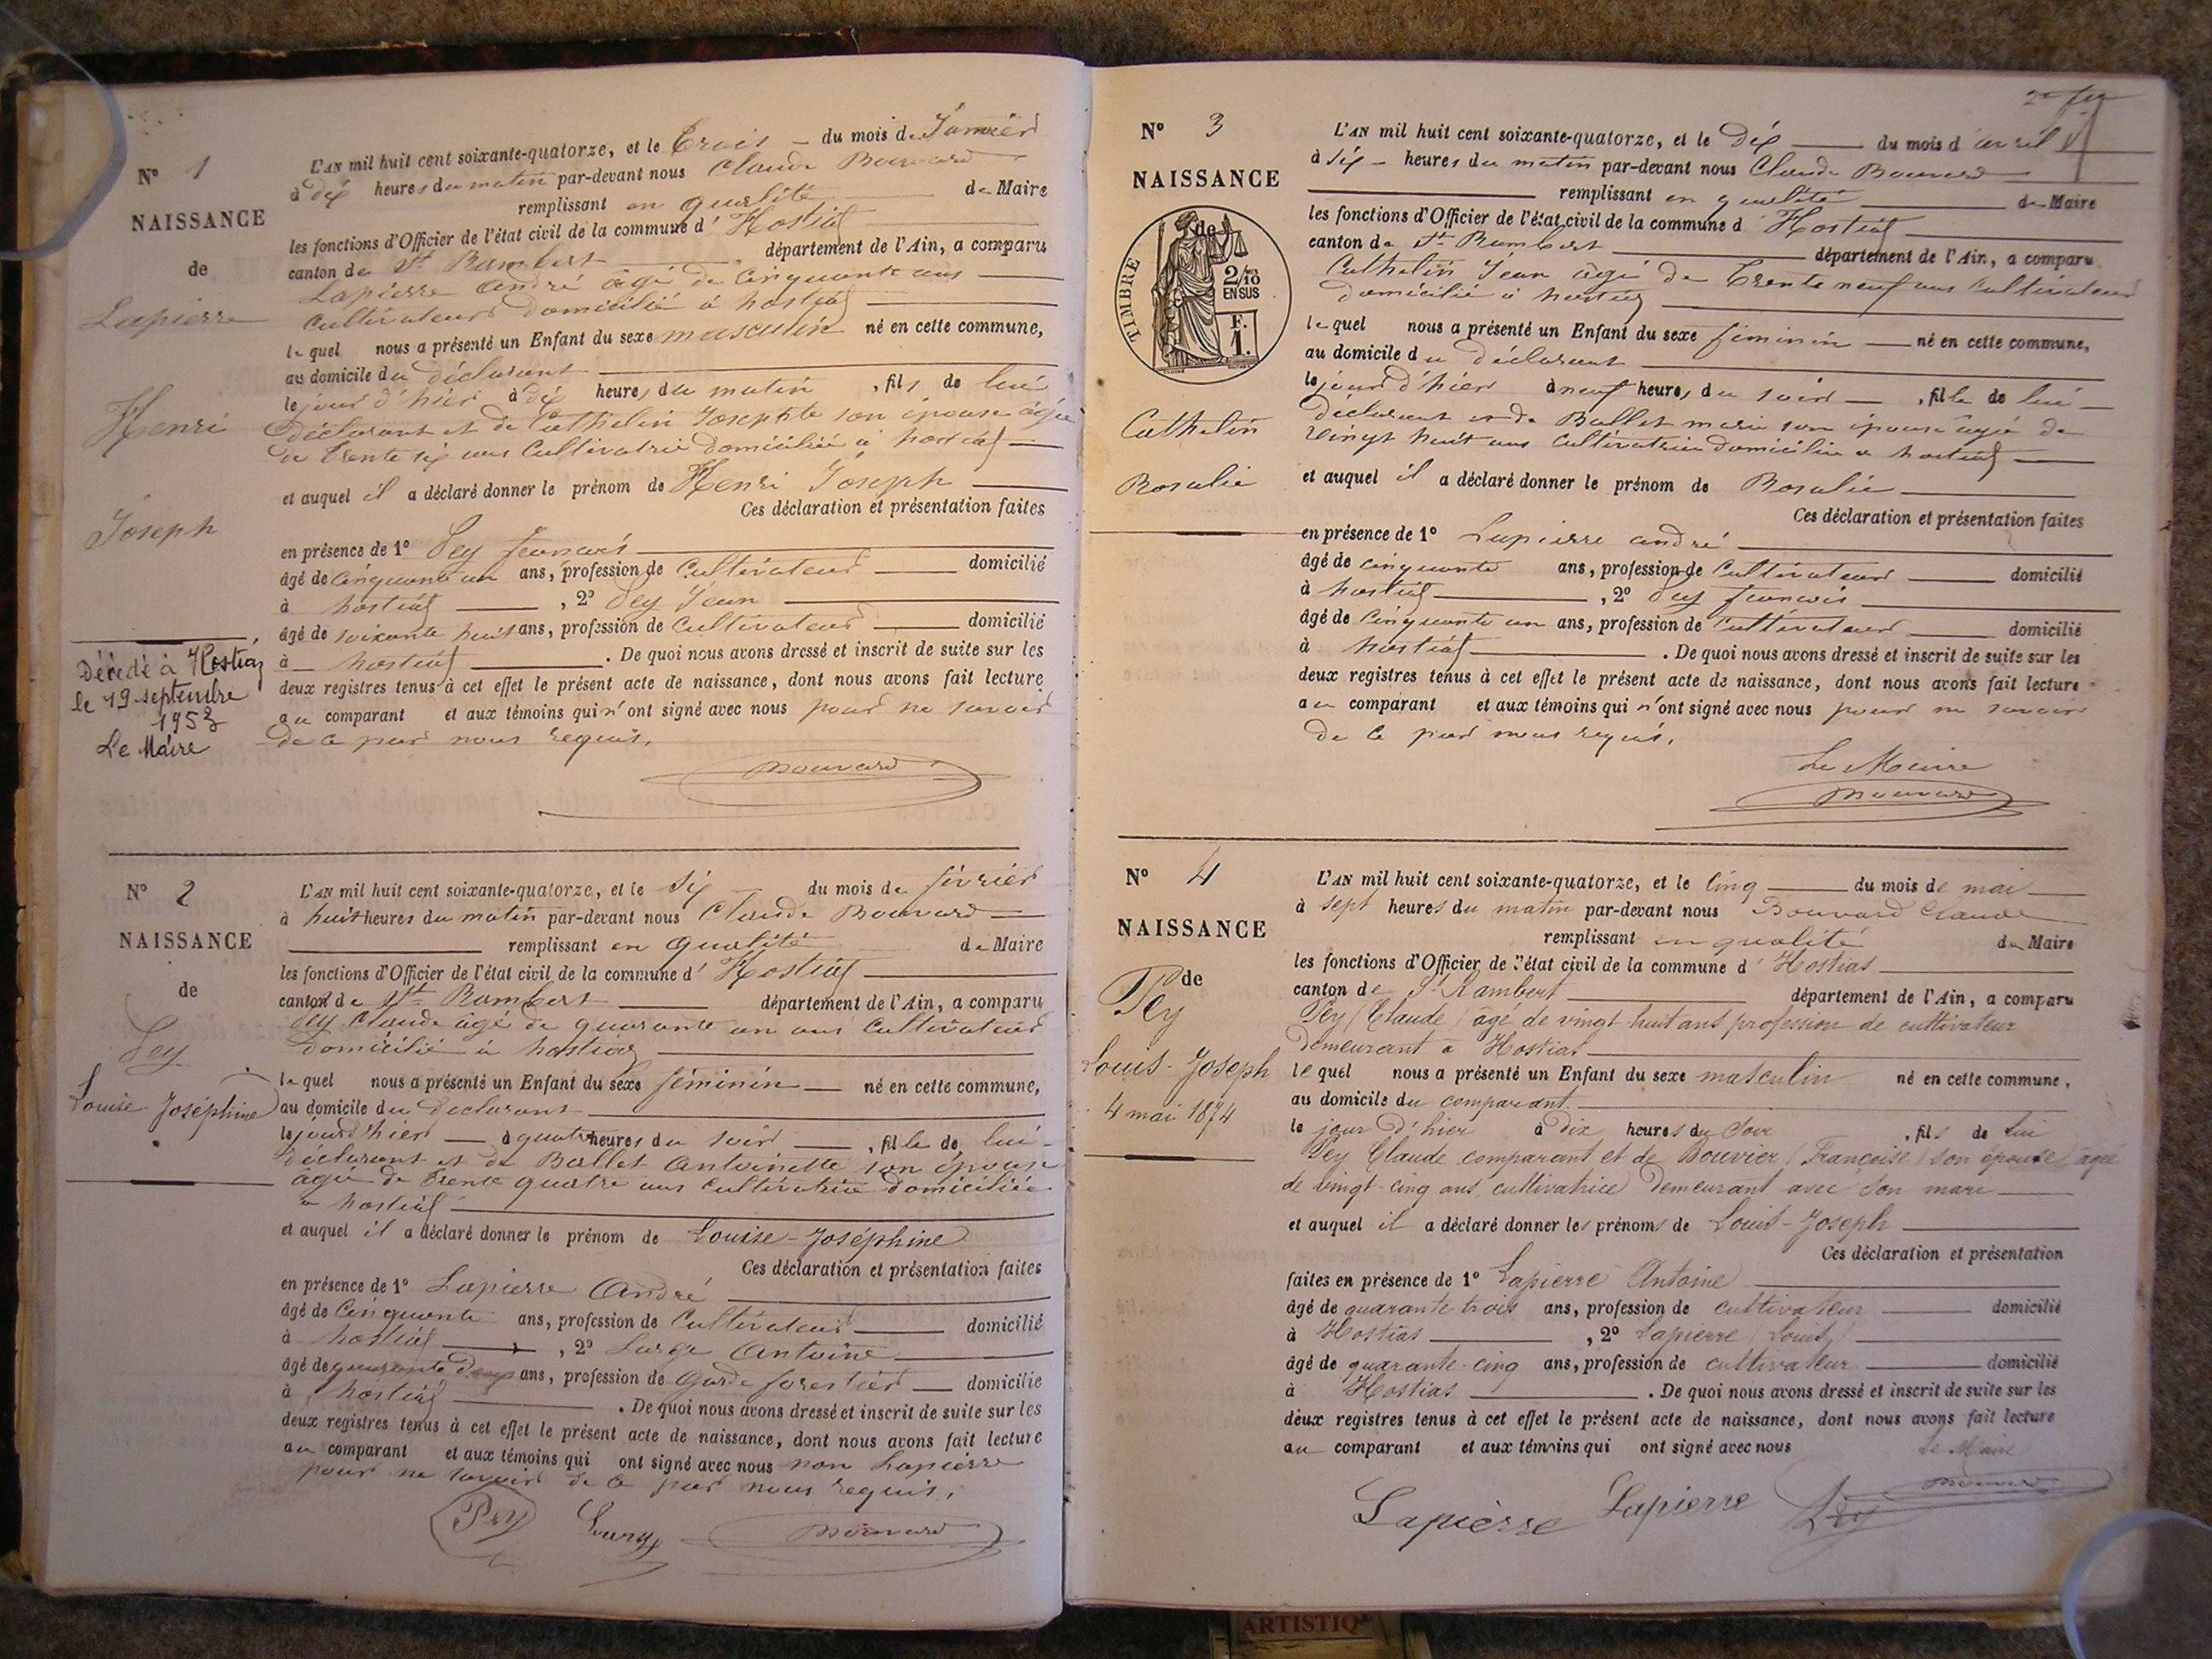 N° 1
NAISSANCE
de
Lapierre
Henri
Joseph
Décédé à Hostiaz
le 19 septembre
1953
Le Maire
L'AN mil huit cent soixante-quatorze, et le trois du mois de Janvier
à dix heures du matin par-devant nous Claude Bouvard
remplissant en qualité de Maire
les fonctions d'Officier de l'état civil de la commune d' Hostiaz
canton de St Rambert département de l'Ain, a comparu
Lapierre André âgé de cinquante ans
cultivateur domicilié à hostiaz
lequel nous a présenté un Enfant du sexe masculin né en cette commune,
au domicile du déclarant
le jour d'hier à dix heures du matin , fils de lui
déclarant et de Cathelin Josephte son épouse âgée
de trente six ans cultivatrice domiciliée à hostiaz
et auquel il a déclaré donner le prénom de Henri Joseph
Ces déclaration et présentation faites
en présence de 1° Pey francois
âgé de cinquante un ans, profession de cultivateur domicilié
à hostiaz , 2° Pey Jean
âgé de soixante huit ans, profession de cultivateur domicilié
à hostiaz . De quoi nous avons dressé et inscrit de suite sur les
deux registres tenus à cet effet le présent acte de naissance, dont nous avons fait lecture
au comparant et aux témoins qui n'ont signé avec nous pour ne savoir
de ce par nous requis.
Bouvard
N° 2
NAISSANCE
de
Pey
Louise Joséphine
L'AN mil huit cent soixante-quatorze, et le six du mois de février
à huit heures du matin par-devant nous Claude Bouvard
remplissant en qualité de Maire
les fonctions d'Officier de l'état civil de la commune d' Hostiaz
canton de St Rambert département de l'Ain, a comparu
Pey Claude âgé de quarante un ans cultivateur
domicilié à hostiaz
lequel nous a présenté un Enfant du sexe féminin né en cette commune,
au domicile du declarant
le jour d'hier à quatre heures du soir , fille de lui
déclarant et de Ballet Antoinette son épouse
âgée de trente quatre ans cultivatrice domiciliée
a hostiaz
et auquel il a déclaré donner le prénom de Louise-Joséphine
Ces déclaration et présentation faites
en présence de 1° Lapierre André
âgé de cinquante ans, profession de cultivateur domicilié
à hostiaz , 2° Antoine
âgé de quarante deux ans, profession de garde forestier domicilié
à hostiaz . De quoi nous avons dressé et inscrit de suite sur les
deux registres tenus à cet effet le présent acte de naissance, dont nous avons fait lecture
au comparant et aux témoins qui ont signé avec nous non Lapierre
pour ne savoir de ce par nous requis.
Pey Bouvard
N° 3
NAISSANCE
de
TIMBRE
2/10
EN SUS
F.
1.
Cathelin
Rosalie
L'AN mil huit cent soixante-quatorze, et le dix du mois d'avril
à six heures du matin par-devant nous Claude Bouvard
remplissant en qualité de Maire
les fonctions d'Officier de l'état civil de la commune d' Hostiaz
canton de St Rambert département de l'Ain, a comparu
Cathelin Jean âgé de trente neuf ans cultivateur
domicilié à hostiaz
lequel nous a présenté un Enfant du sexe féminin né en cette commune,
au domicile du déclarant
le jour d'hier à neuf heures du soir , fille de lui
déclarant et de Ballet marie son épouse agée de
vingt huit ans cultivatrice domiciliée a hostiaz
et auquel il a déclaré donner le prénom de Rosalie
Ces déclaration et présentation faites
en présence de 1° Lapierre andré
âgé de cinquante ans, profession de cultivateur domicilié
à hostiaz , 2° Pey francois
âgé de cinquante un ans, profession de cultivateur domicilié
à hostiaz . De quoi nous avons dressé et inscrit de suite sur les
deux registres tenus à cet effet le présent acte de naissance, dont nous avons fait lecture
au comparant et aux témoins qui n'ont signé avec nous pour ne savoir
de ce par nous requis.
Le Maire
Bouvard
N° 4
NAISSANCE
de
Pey
Louis-Joseph
4 mai 1874
L'AN mil huit cent soixante-quatorze, et le cinq du mois de mai
à sept heures du matin par-devant nous Bouvard Claude
remplissant en qualité de Maire
les fonctions d'Officier de l'état civil de la commune d' Hostias
canton de St Rambert département de l'Ain, a comparu
Pey (Claude) âgé de vingt huit ans profession de cultivateur
demeurant à Hostias
lequel nous a présenté un Enfant du sexe masculin né en cette commune,
au domicile du comparant
le jour d'hier à dix heures du soir , fils de lui
Pey Claude comparant et de Bouvier (Françoise) son épouse, agée
de vingt-cinq ans, cultivatrice demeurant avec son mari
et auquel il a déclaré donner les prénoms de Louis-Joseph
Ces déclaration et présentation
faites en présence de 1° Lapierre Antoine
âgé de quarante trois ans, profession de cultivateur domicilié
à Hostias , 2° Lapierre (Louis)
âgé de quarante-cinq ans, profession de cultivateur domicilié
à Hostias . De quoi nous avons dressé et inscrit de suite sur les
deux registres tenus à cet effet le présent acte de naissance, dont nous avons fait lecture
au comparant et aux témoins qui ont signé avec nous
Le Maire
Lapierre Lapierre Pey Bouvard
ARTISTIQ